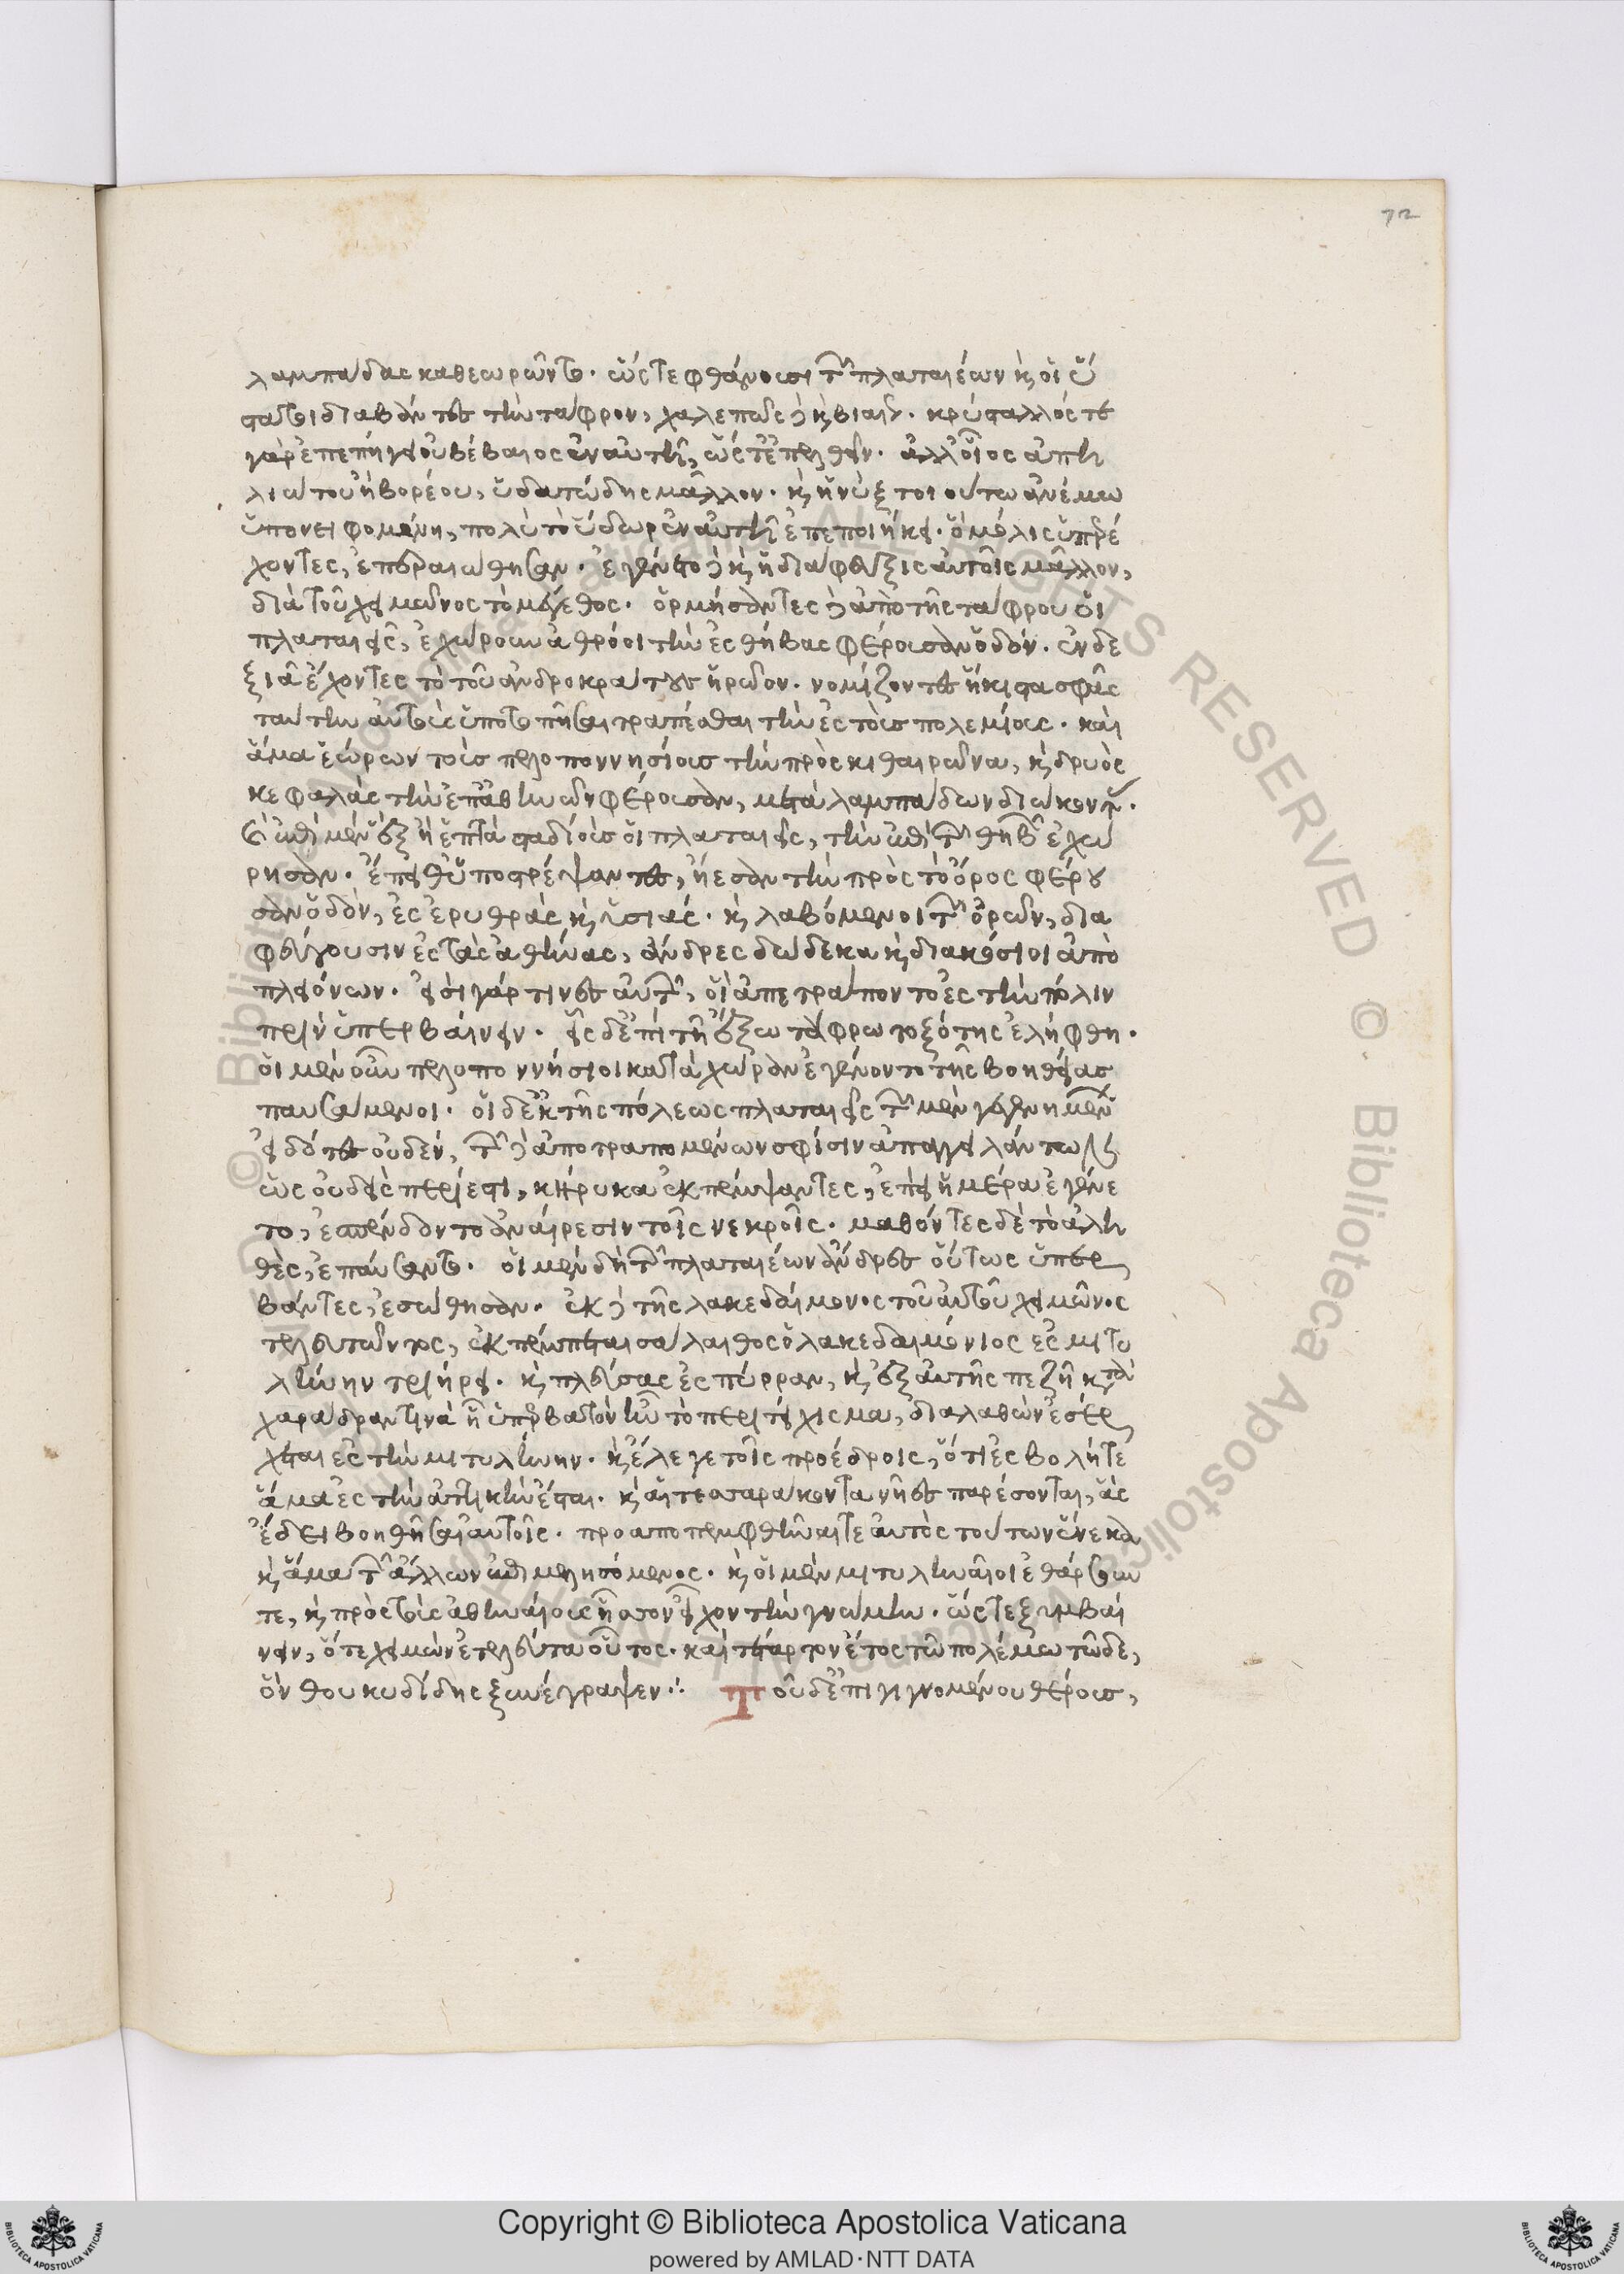 72
λαμπάδας καθεωρῶντο. ὥστε φθάνουσι τῶν πλαταιέων καὶ οἱ ὕ
στατοι διαβάντες τὴν τάφρον, χαλεπῶς δὲ καὶ βιαίως. κρύσταλλός τε
γὰρ ἐπεπήγει οὐ βέβαιος ἐν αὐτῆ, ὥστ' ἐπελθεῖν. ἀλλ' οἷος ἀπη
λιώτου ἢ βορέου, ὑδατώδης μᾶλλον. καὶ ἡ νὺξ τοιούτω ἀνέμω
ὑπονειφομένη, πολὺ τὸ ὕδωρ ἐν αὐτῆ ἐπεποιήκει. ὃ μόλις ὑπερέ
χοντες, ἐπεραιώθησαν. ἐγένετο δὲ καὶ ἡ διάφευξις αὐτοῖς μᾶλλον,
διὰ τοῦ χειμῶνος τὸ μέγεθος. ὁρμήσαντες δὲ ἀπὸ τῆς τάφρου οἱ
πλαταιεῖς, ἐχώρουν ἁθρόοι τὴν ἐς θήβας φέρουσαν ὁδόν. ἐν δε
ξιᾶ ἔχοντες τὸ τοῦ ἀνδροκράτους ἡρῶον. νομίζοντες ἥκιστα σφᾶς
ταύτην αὐτοὺς ὑποτοπῆσαι τραπέσθαι τὴν ἐς τοὺς πολεμίους. καὶ
ἅμα ἑώρων τοὺς πελοποννησίους τὴν πρὸς κιθαιρῶνα, καὶ δρυὸς
κεφαλὰς τὴν ἐπ' ἀθηνῶν φέρουσαν, μετὰ λαμπάδων διώκοντας.
καὶ ἐπὶ μὲν ἓξ ἢ ἑπτὰ σταδίους οἱ πλαταιεῖς, τὴν ἐπὶ τῶν θηβῶν ἐχώ
ρησαν. ἔπειθ' ὑποστρέψαντες, ἤεσαν τὴν πρὸς τὸ ὄρος φέρου
σαν ὁδὸν, ἐς ἐρυθρὰς καὶ ὑσιάς. καὶ λαβόμενοι τῶν ὀρῶν, δια
φεύγουσιν ἐς τὰς ἀθήνας, ἄνδρες δώδεκα καὶ διακόσιοι ἀπὸ
πλειόνων. εἰσὶ γάρ τινες αὐτῶν, οἳ ἀπετράποντο ἐς τὴν πόλιν
πρὶν ὑπερβαίνειν. εἷς δ' ἐπὶ τῆ ἔξω τάφρω τοξότης ἐλήφθη.
οἱ μὲν οὖν πελοποννήσιοι κατὰ χώραν ἐγένοντο τῆς βοηθείας
παυσάμενοι. οἱ δ' ἐκ τῆς πόλεως πλαταιεῖς τῶν μὲν γεγενημένων
εἰδότες οὐδέν, τῶν δὲ ἀποτραπομένων σφίσιν ἀπαγγειλάντων
ὡς οὐδεὶς περίεστι, κήρυκα ἐκπέμψαντες, ἐπεὶ ἡμέρα ἐγένε
το, ἐσπένδοντο ἀναίρεσιν τοῖς νεκροῖς. μαθόντες δὲ τὸ ἀλη
θὲς, ἐπαύσαντο. οἱ μὲν δὴ τῶν πλαταιέων ἄνδρες οὕτως ὑπερ
βάντες, ἐσώθησαν. ἐκ δὲ τῆς λακεδαίμονος τοῦ αὐτοῦ χειμῶνος
τελευτῶντος, ἐκπέμπεται σάλαιθος ὁ λακεδαιμόνιος ἐς μιτυ
λήνην τριήρει. καὶ πλεύσας ἐς πύρραν, καὶ ἐξ αὐτῆς πεζῆ κατὰ
χαράδραν τινὰ ἧ ὑπερβατὸν ἦν τὸ περιτείχισμα, διαλαθὼν ἐσέρ
χεται ἐς τὴν μιτυλήνην. καὶ ἔλεγε τοῖς προέδροις, ὅτι ἐσβολή τε
ἅμα ἐς τὴν ἀττικὴν ἔσται. καὶ αἱ τεσσαράκοντα νῆες παρέσονται, ἃς
ἔδει βοηθῆσαι αὐτοῖς. προαποπεμφθῆναί τε αὐτὸς τούτων ἕνεκα
καὶ ἅμα τῶν ἄλλων ἐπιμελησόμενος. καὶ οἱ μὲν μιτυληναῖοι ἐθάρσουν
τε, καὶ πρὸς τοὺς ἀθηναίους ἧσσον εἶχον τὴν γνώμην. ὥστε ξυμβαί
νειν, ὅ τε χειμὼν ἐτελεύτα οὗτος. καὶ τέταρτον ἔτος τῶ πολέμω τῶδε,
ὃν θουκυδίδης ξυνέγραψεν ∴ Τοῦ δ' ἐπιγιγνομένου θέρους,
© Biblioteca Apostolica Vaticana
ALL RIGHTS RESERVED
Copyright © Biblioteca Apostolica Vaticana
powered by AMLAD·NTT DATA
BIBLIOTECA APOSTOLICA VATICANA
BIBLIOTECA APOSTOLICA VATICANA